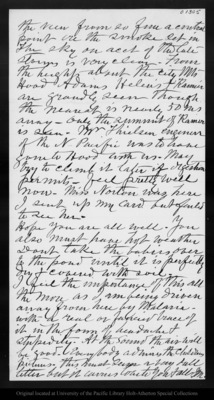 01305
the view from so fine a central
point - in the smoke let in
The sky on acct of the late
storms is very clear. From
the heights about the city Mts
Hood - Adams Helens & Ranier
are grandly seen though
the nearest is nearly 50 ms
away - only the summit of Ranier
is seen - Mr Thielsen Engineer
of the N Pacific was to have
gone to Hood with us. May
try to climb it later if
permits. Feel pretty well
now - Miss Norton was here
I sent up my card but failed
to see her -
Hope you are all well - You
also must have hot weather
Don't take the babies
to the pond until it is perfectly
dry & covered with soil
I feel the importance of this all
the more as I am being driven
away from here by Malaria
with a real or fancied trace of
it in the form of headache &
stupidity - At the sound the air will
be good. Everybody admires the children
pictures, this must
letter
Original located at University of the Pacific Library Holt-Atherton Special Collections.